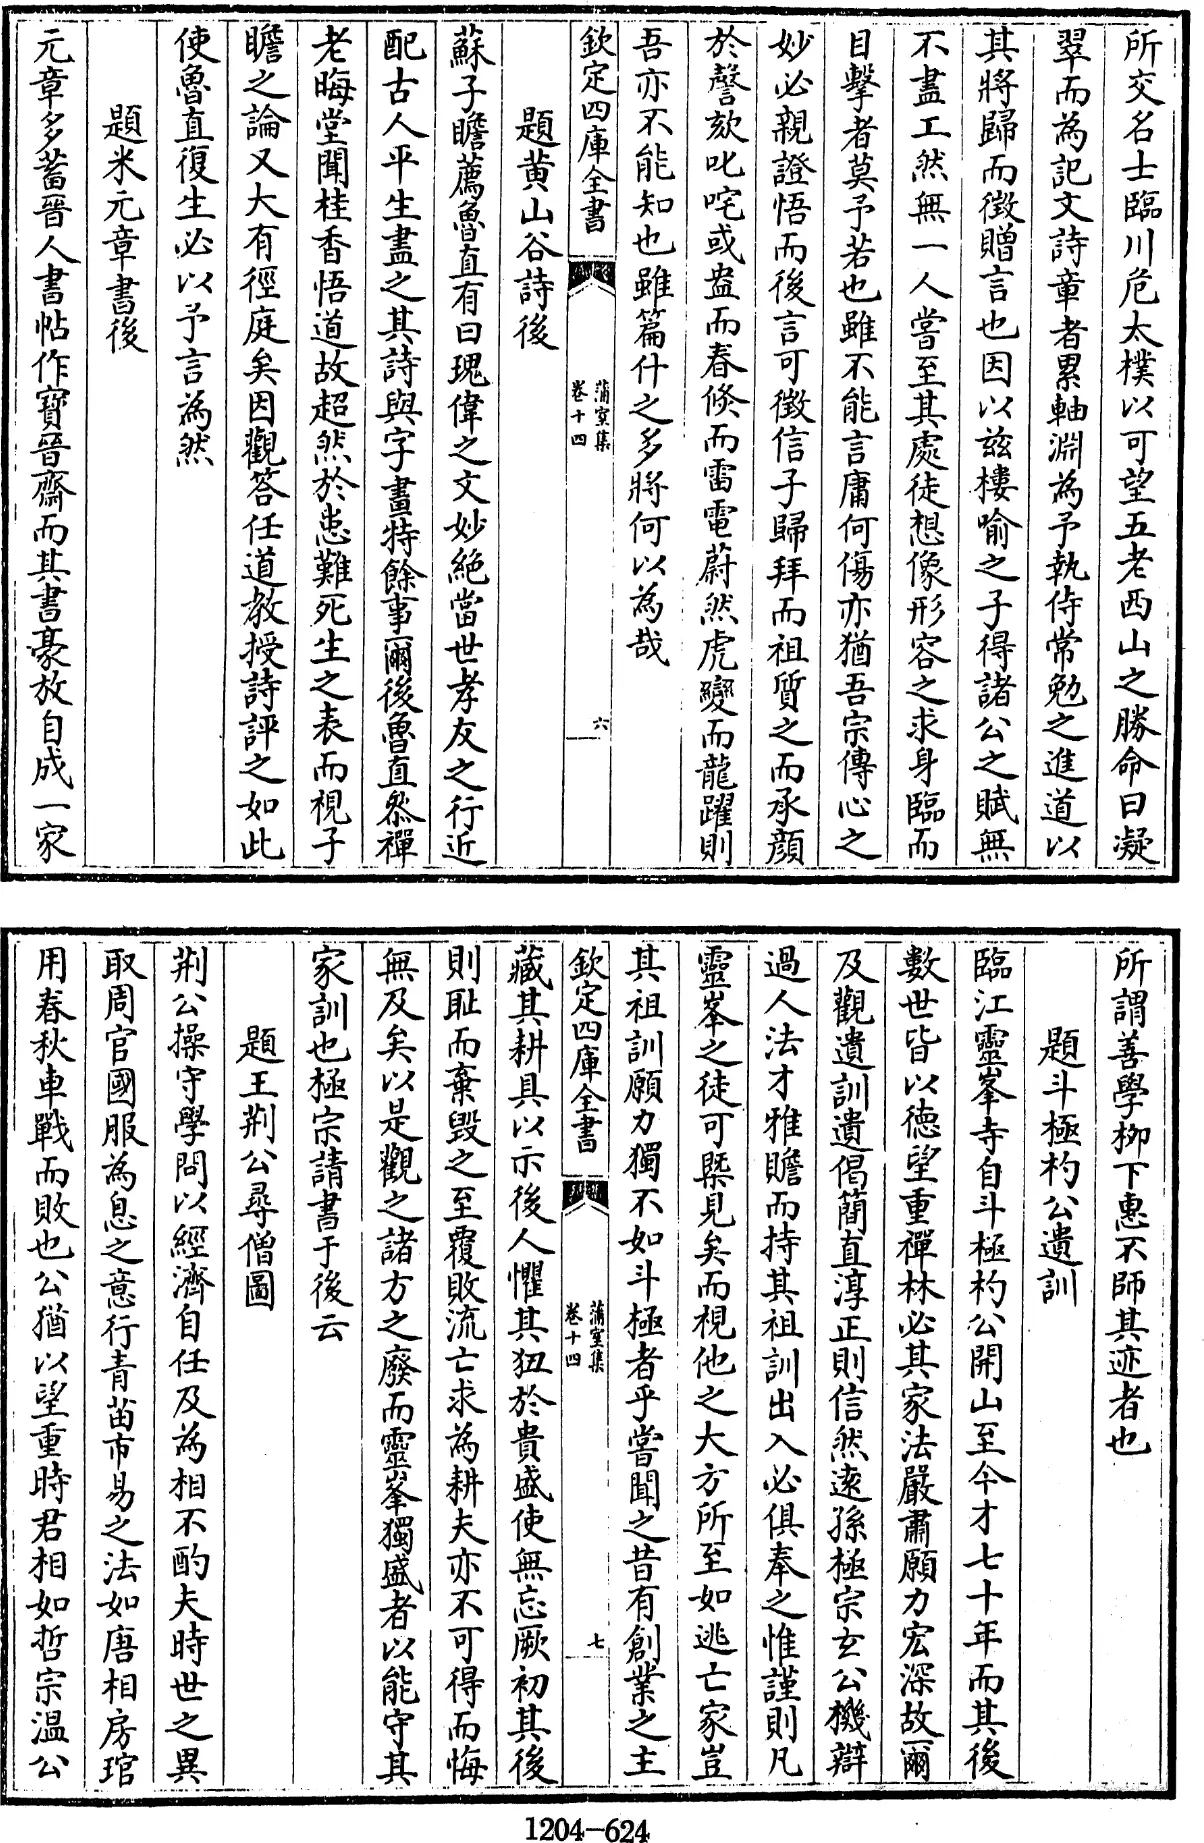 所交名士臨川危太樸以可望五老西山之勝命曰凝
翠而為記文詩章者累軸淵為予執侍常勉之進道以
其將歸而徴贈言也因以兹樓喻之子得諸公之賦無
不盡工然無一人嘗至其處徒想像形容之求身臨而
目擊者莫予若也雖不能言庸何傷亦猶吾宗傳心之
妙必親證悟而後言可徴信子歸拜而祖質之而承顔
於謦欬叱咤或盎而春倐而雷電蔚然虎變而龍躍則
吾亦不能知也雖篇什之多將何以為哉
欽定四庫全書
蒲室集
卷十四
六
題黄山谷詩後
蘇子瞻薦魯直有曰瑰偉之文妙絶當世孝友之行近
配古人平生盡之其詩與字畫特餘事爾後魯直叅禪
老晦堂聞桂香悟道故超然於患難死生之表而視子
瞻之論又大有徑庭矣因觀答任道教授詩評之如此
使魯直復生必以予言為然
題米元章書後
元章多蓄晉人書帖作寳晉齋而其書豪放自成一家
所謂善學栁下惠不師其迹者也
題斗極杓公遺訓
臨江靈峯寺自斗極杓公開山至今才七十年而其後
數世皆以徳望重禪林必其家法嚴肅願力宏深故爾
及觀遺訓遺偈簡直淳正則信然逺孫極宗玄公機辯
過人法才雅贍而持其祖訓出入必俱奉之惟謹則凡
靈峯之徒可槩見矣而視他之大方所至如逃亡家豈
其祖訓願力獨不如斗極者乎嘗聞之昔有創業之主
欽定四庫全書
蒲室集
卷十四
七
藏其耕具以示後人懼其狃於貴盛使無忘厥初其後
則耻而棄毁之至覆敗流亡求為耕夫亦不可得而悔
無及矣以是觀之諸方之廢而靈峯獨盛者以能守其
家訓也極宗請書于後云
題王荆公尋僧圖
荆公操守學問以經濟自任及為相不酌夫時世之異
取周官國服為息之意行青苗市易之法如唐相房琯
用春秋車戰而敗也公猶以望重時君相如哲宗温公
1204—624